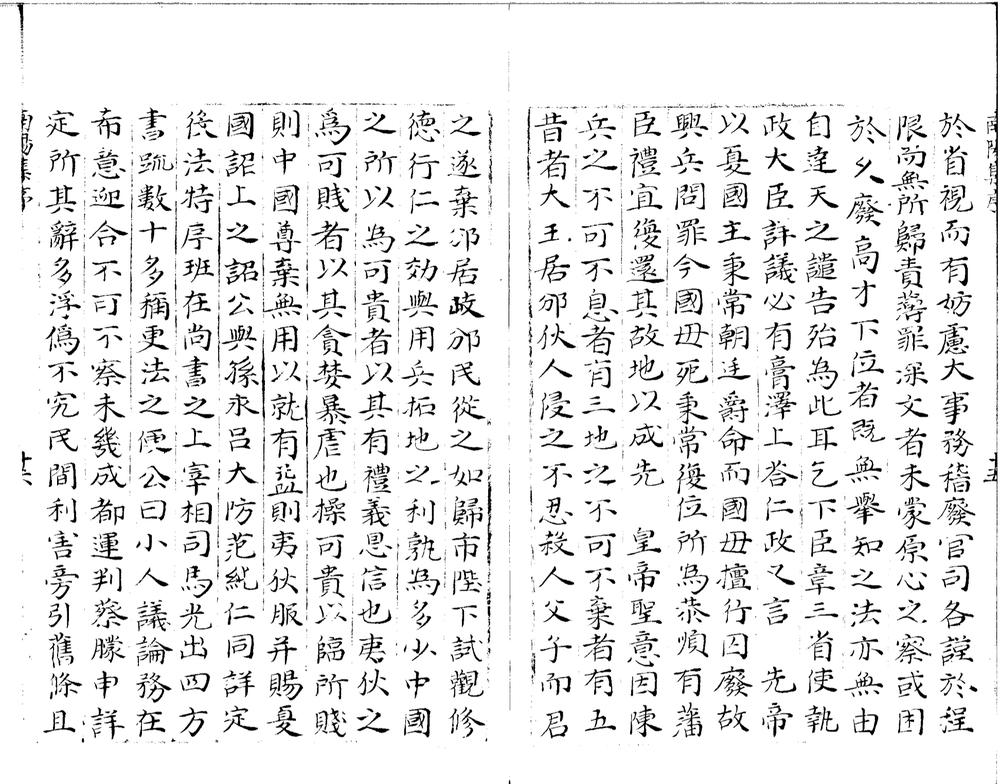 於省視而有妨慮大事務稽廢官司各謹於程
限而無所歸責薄罪深文者未蒙原心之察或困
於久廢高才下位者旣無舉知之法亦無由
自達天之譴告殆為此耳乞下臣章三省使執
政大臣詳議必有膏澤上答仁政又言　先帝
以夏國主秉常朝廷爵命而國母擅行囚廢故
興兵問罪今國母死秉常復位所為恭順有藩
臣禮宜復還其故地以成先　皇帝聖意因陳
兵之不可不息者有三地之不可不棄者有五
昔者大王居邠狄人侵之不忍殺人父子而君
之遂棄邠居岐邠民從之如歸市陛下試觀修
德行仁之効與用兵拓地之利孰為多少中國
之所以為可貴者以其有禮義恩信也夷狄之
為可賤者以其貪婪暴虐也操可貴以臨所賤
則中國尊棄無用以就有益則夷狄服并賜夏
國詔上之詔公與孫永呂大防范純仁同詳定
役法特序班在尚書之上宰相司馬光出四方
書疏數十多稱更法之便公曰小人議論務在
希意迎合不可不察未幾成都運判蔡朦申詳
定所其辭多浮偽不究民間利害旁引舊條且
十六